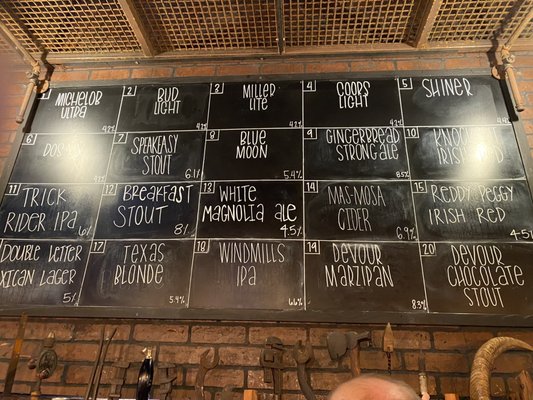 1
MICHELOB
ULTRA
4.2%
2
BUD
LIGHT
4.2%
3
MILLER
LITE
4.2%
4
COORS
LIGHT
4.2%
5
SHINER
6
7
SPEAKEASY
STOUT
6.1%
8
BLUE
MOON
5.4%
9
GINGERBREAD
STRONG ALE
8.5%
10
IRISH RED
11
TRICK
RIDER IPA
6%
12
BREAKFAST
STOUT
8%
13
WHITE
MAGNOLIA ALE
4.5%
14
MAS-MOSA
CIDER
6.9%
15
REDDY PEGGY
IRISH RED
4.5%
DOUBLE LETTER
XICAN LAGER
5%
17
TEXAS
BLONDE
5.4%
18
WINDMILLS
IPA
6.6%
19
DEVOUR
MARZIPAN
8.3%
20
DEVOUR
CHOCOLATE
STOUT